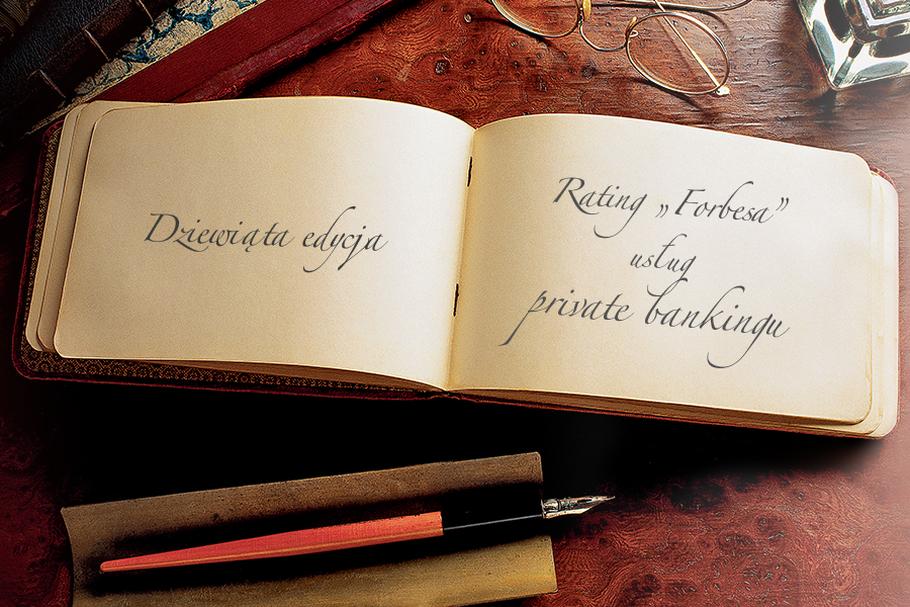 Dziewiąta edycja
Rating „Forbesa”
usług
private bankingu